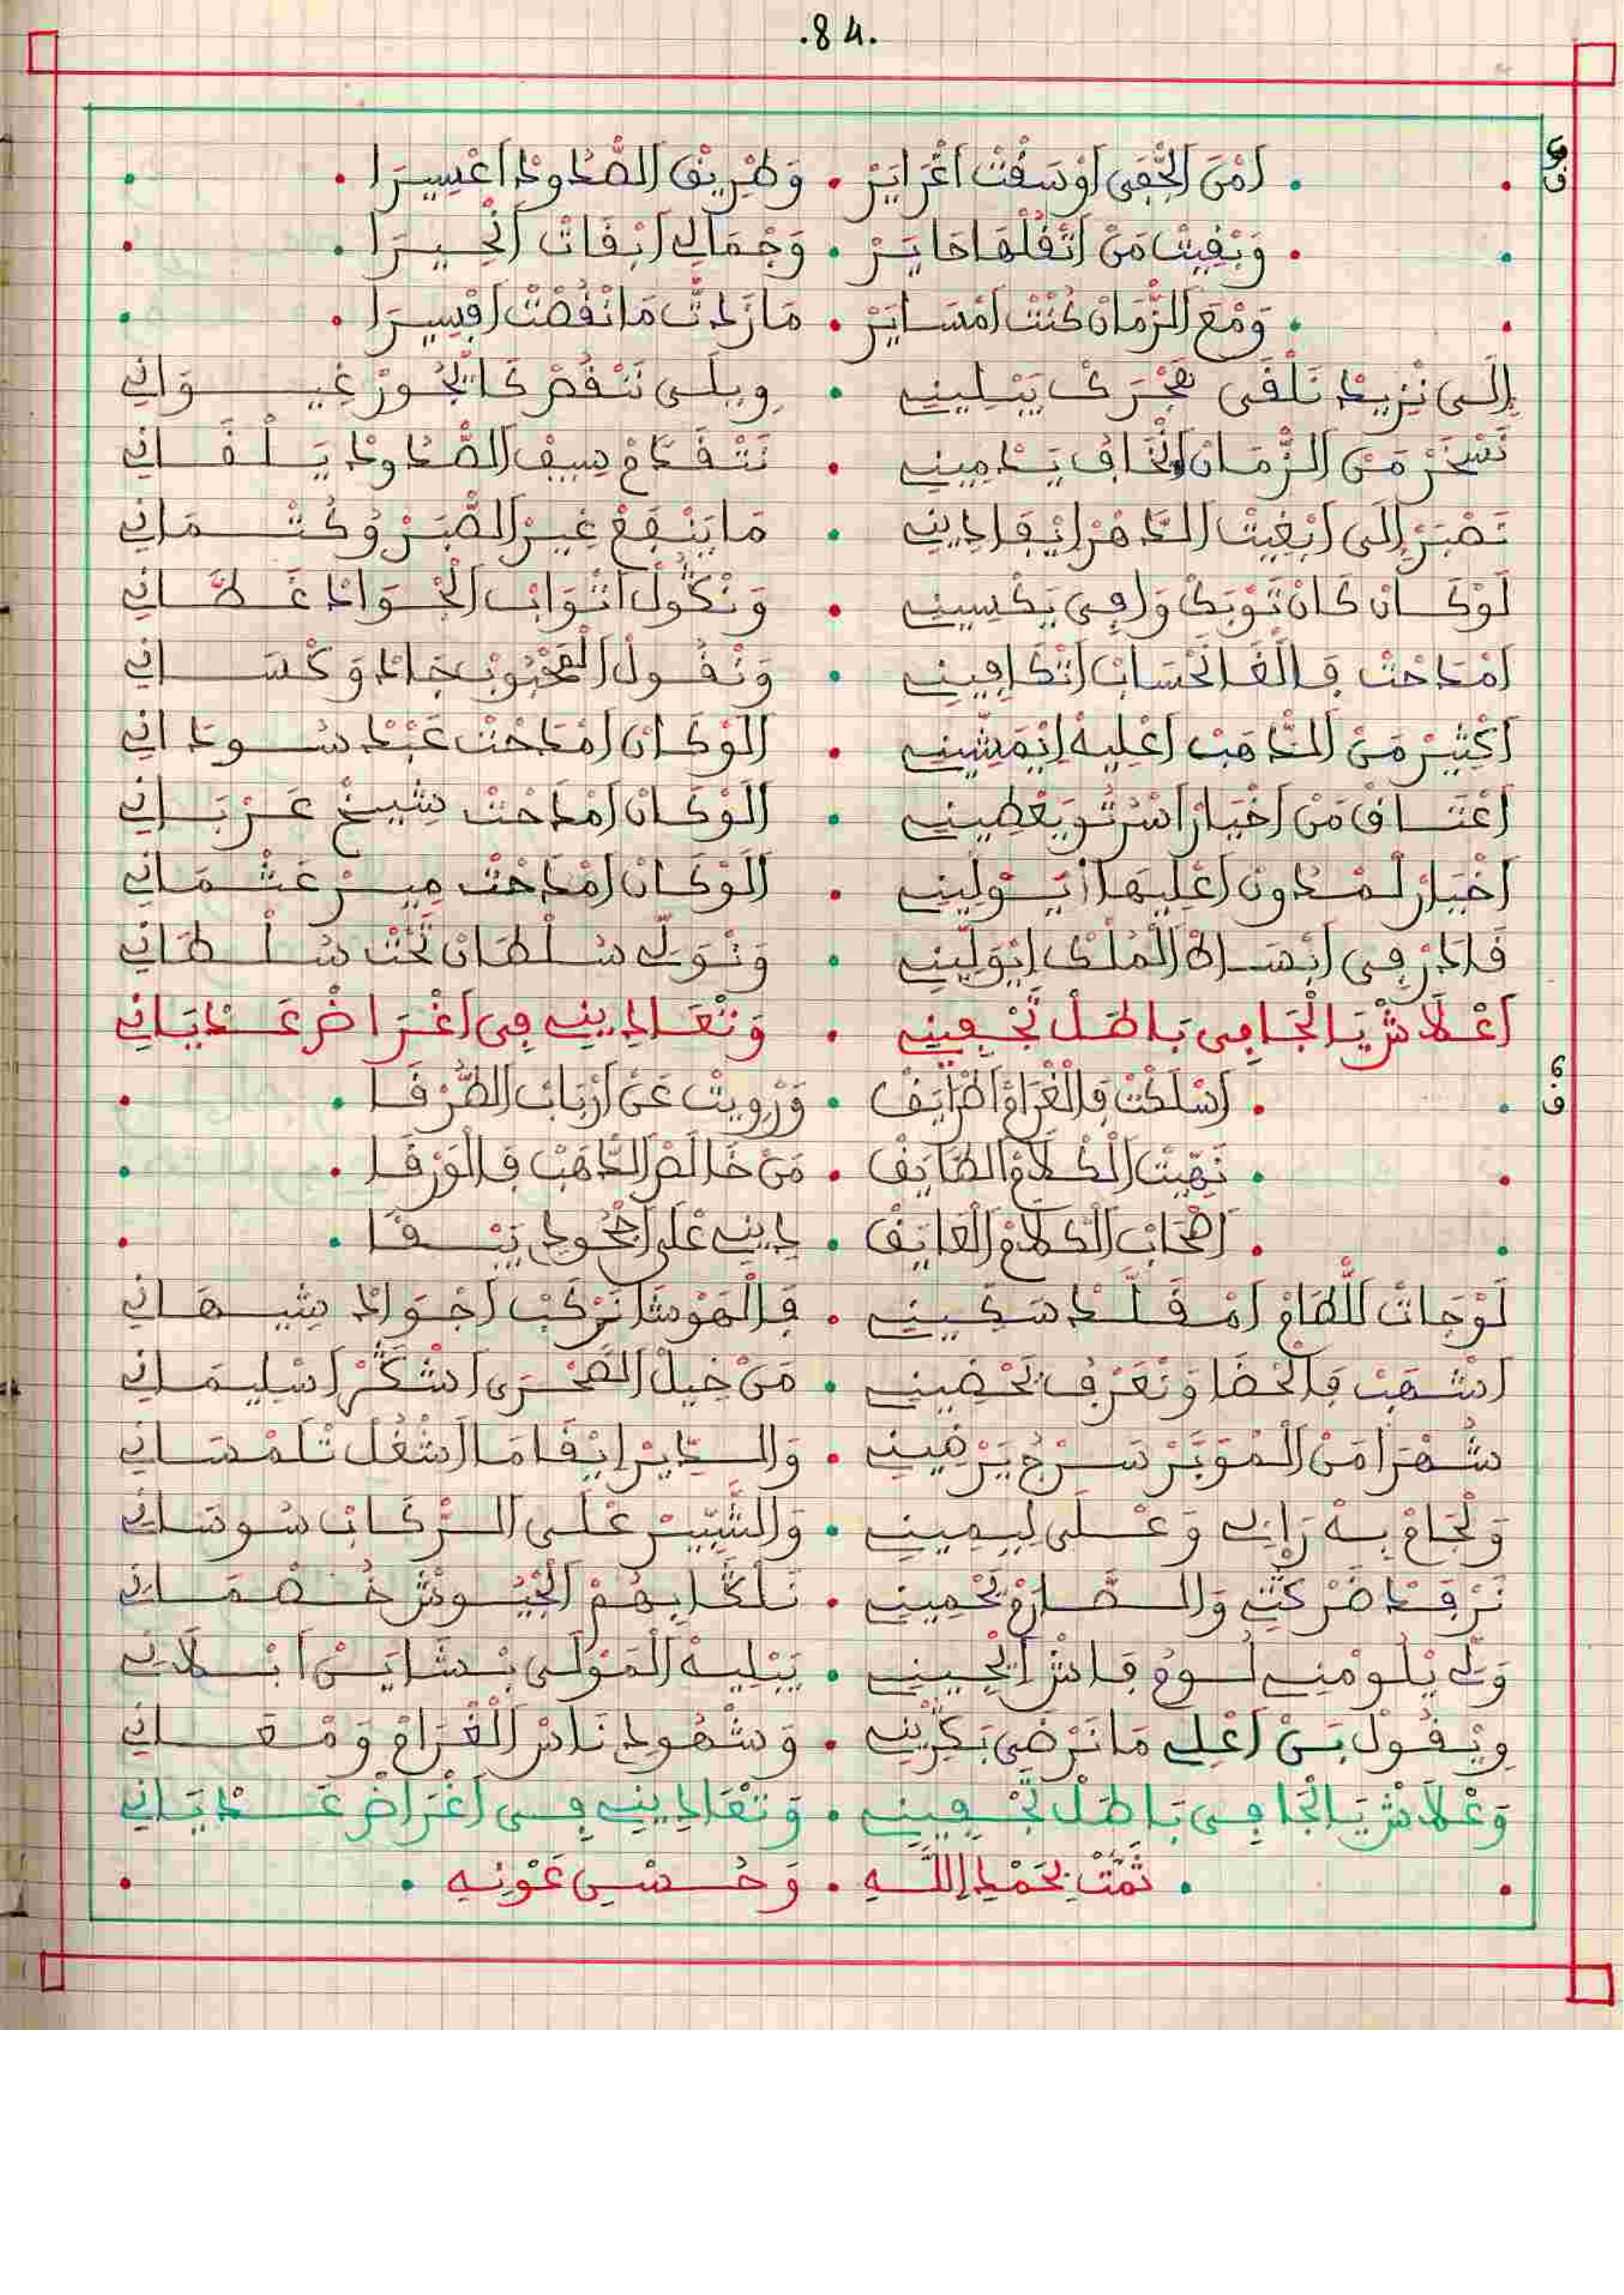 .84.
ف
اَمْنَ الْجْفَى اَوْسَقْتْ اغْرَايَرْ • وَطْرِيقْ الصّْدُودْ اعْسِيرَا
وَبْقِيتْ مَنْ اتْقُلْهَا حَايَرْ • وَجْمَالِي ابْقَاتْ اتْحِيرَا
وَمْعَ الزّْمَانْ كُنْتْ امْسَايَرْ • مَا زَدْتْ مَا نْقُصْتْ اقِيسِرَا
إِلَى نْزِيدْ نَلْقَى هَجْرَكْ يَبْلِينِي • وِيلَى نَنْقُصْ كَا تْجُورْ غِيوَانِي
نَسْخَرْ مَنْ الزّْمَانْ انْخَافْ يَدْمِينِي • نَتْقَدَّمْ سِيفْ الصّْدُودْ يَلْقَانِي
نَصْبَرْ إِلَى ابْغِيتْ الدَّهْرْ ايْفَادِينِي • مَا يَنْفَعْ غِيرْ الصّْبَرْ وُكُتْمَانِي
لَوْكَانْ كَانْ تَوْبَكْ وَافِي يَكْسِينِي • وَنْكُولْ اتْوَابْ الْجْوَادْ غَطَّانِي
امْدَحْتْ فَالْفَا انْحْسَابْ اتْكَافِينِي • وَنْقُولْ الْمَحْبُوبْ جَادْ وَكْسَانِي
اكْثِيرْ مَنْ الدّْهَبْ اعْلِيهْ ايْمَشِّينِي • الَوْكَانْ امْدَحْتْ عَبْدْ سُودَانِي
اعْتَاقْ مَنْ اخْيَارْ اسْرُتُو يَعْطِينِي • الَوْكَانْ امْدَحْتْ شِيخْ عَرْبَانِي
اخْيَارْ لَمْدُونْ اعْلِيهَا يَوَلِّينِي • الَوْكَانْ امْدَحْتْ مِيرْ عَثْمَانِي
قَادْرْ فِي ابْسَاطْ الْمُلْكْ ايْوَلِّينِي • وَنْوَلِّي سُلْطَانْ تَحْتْ سُلْطَانِي
اعْلَاشْ يَا الْجَافِي بَاطَلْ تَجْفِينِي • وَتْعَادِينِي فِي اغْرَاضْ عَدْيَانِي
6 ف
اسْلَكْتْ فَالْغْرَامْ اطْرَايَفْ • وَرْوِيتْ عَنْ ارْبَابْ الظُّرْفَا
نَهِّيتْ الْكْلَامْ الطَّايَفْ • مَنْ خَالَصْ الدّْهَبْ فَالْوَرْقَا
اصْحَابْ الْكْلَامْ الْعَايَفْ • دِينِي عْلَى اجْحُودِي تَبْقَا
لَوْجَاتْ لَلْطَامْ امْقَلَّدْ سَكِّينِي • فَالْهَوْشَا نَرْكَبْ اجْوَادْ شِيهَانِي
اشْهَبْ فَالْخْضَا وَنْعَرْفُ يَحْضِينِي • مَنْ خِيلْ الصَّحْرَى اشْكَرْ اسْلِيمَانِي
شُهْرَا مَنْ الْمْوَبَّرْ سَرْجُ يَرْضِينِي • وَالدِّيرْ ايْفَامَا اشْغُلْ تْلَمْسَانِي
وَلْجَامْ بِهْ رَايِي وَعْلَى لِيمِينِي • وَالشّْبِيرْ عْلَى الرّْكَابْ سُوسَانِي
نَرْفَدْ ضَرْكْتِي وَالصَّارَمْ يَحْمِينِي • نَلْگَا بِهُمْ الْجْيُوشْ خُصْمَانِي
وَلِّي يْلُومْنِي لُومُ فَاشْ ايْجِينِي • يَبْلِيهْ الْمَوْلَى بْشَايَنْ ابْلَانِي
وِيْقُولْ بَنْ اعْلِي مَا نَرْضَى بَكْرِينِي • وَشْهُودِي نَاسْ الْغْرَامْ وَمْعَانِي
وَعْلَاشْ يَا الْجَافِي بَاطَلْ تَجْفِينِي • وَتْعَادِينِي فِي اغْرَاضْ عَدْيَانِي
تَمَّتْ بِحَمْدِ اللَّهِ • وَحُسْنِ عَوْنِهِ